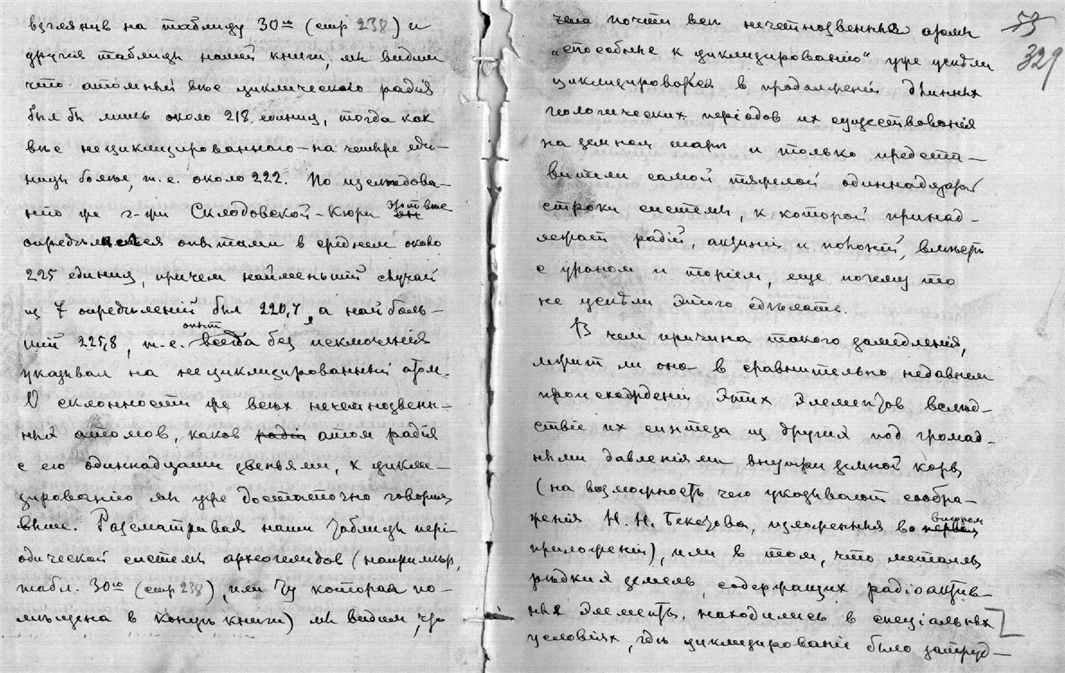 взглянув на таблицу 30ю (стр 238) и
другие таблицы нашей книги, мы видим
что атомный вес циклического радия
был бы лишь около 218 единиц, тогда как
вес нециклизированного – на четыре еди-
ницы более, т.е. около 222. По изследова-
нию же г-жи Склодовской-Кюри этот вес
определяется опытами в среднем около
225 единиц, причем наименьший случай
из 7 определений был 220,7, а наиболь-
ший 225,8, т.е. опыт без исключения
указывал на нециклизированный атом.
О склонности же всех нечетнозвен-
ных атомов, каков атом радия
с его одиннадцатью звеньями, к цикли-
зированию мы уже достаточно говорили
выше. Разсматривая наши таблицы пері-
одической системы археогелидов (например,
табл. 30ю (стр 238), или ту которая по-
мещена в конце книги) мы видим, что
55
329
чего почти все нечетнозвенные атомы
„способные к циклизированію“ уже успели
циклизироваться в продолженіи длинных
геологических періодов их существованія
на земном шаре и только предста-
вители самой тяжелой одиннадцатой
строки системы, к которой принад-
лежат радій, актиній и полоній, вместе
с ураном и торіем, еще почему то
не успели этого сделать.
В чем причина такого замедления,
лежит ли она в сравнительно недавнем
происхождении этих элементов вслед-
ствіе их синтеза из других под громад-
ными давленіями внутри земной коры
(на возможность чего указывают сообра-
женія Н. Н. Бекетова, изложенныя во втором
приложеніи), или в том, что металлы
редких земель, содержащих радіоактив-
ныя элементы, находились в спеціальных
условіях, где циклизированіе было затруд-